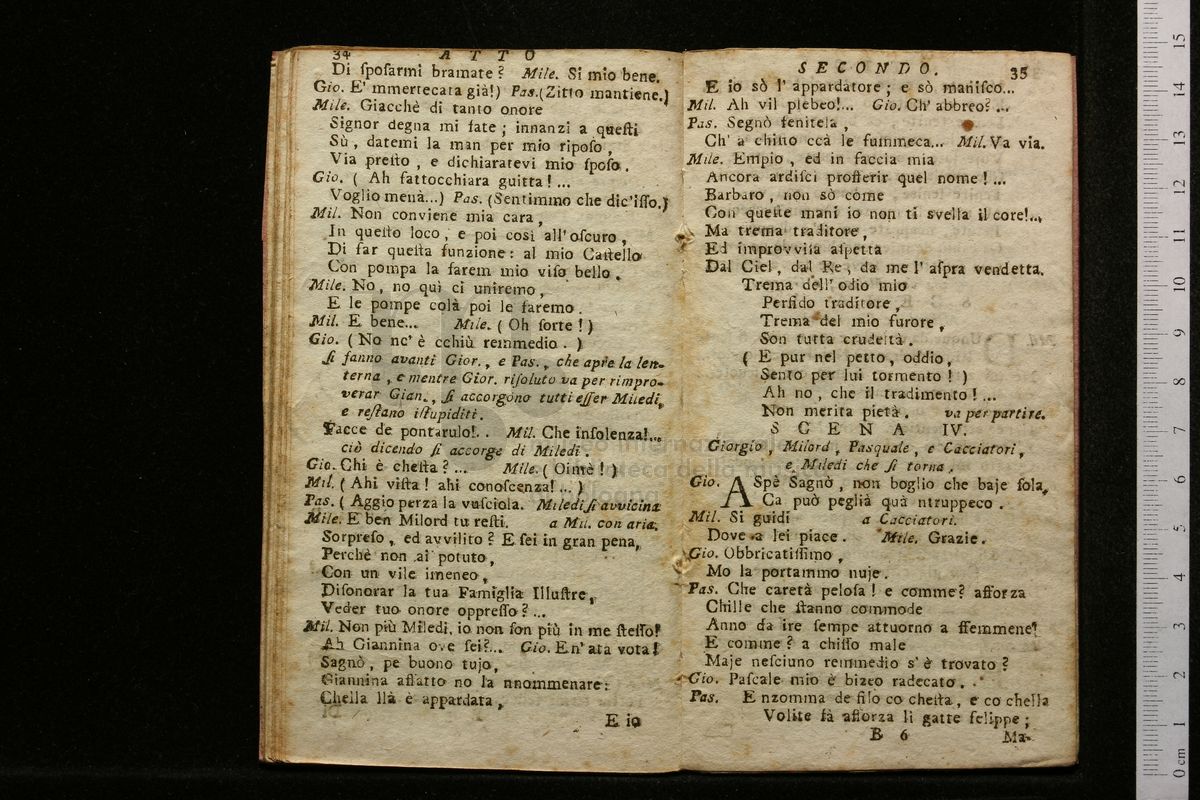 34 ATTO
Di ſpoſarmi bramate? Mile. Si mio bene.
Gio. E' mmertecata già!) Pas.(Zitto mantiene.)
Mile. Giacchè di tanto onore
Signor degna mi fate; innanzi a queſti
Sù, datemi la man per mio ripoſo,
Via preſto, e dichiaratevi mio ſpoſo.
Gio. ( Ah fattocchiara guitta!...
Voglio menà...) Pas. (Sentimmo che dic'iſſo.)
Mil. Non conviene mia cara,
In queſto loco, e poi così all'oſcuro,
Di far queſta funzione: al mio Caſtello
Con pompa la farem mio viſo bello.
Mile. No, no quì ci uniremo,
E le pompe colà poi le faremo.
Mil. E bene... Mile. ( Oh ſorte! )
Gio. ( No nc' è cchiù remmedio. )
ſi fanno avanti Gior., e Pas., che apre la len-
terna, e mentre Gior. riſoluto va per rimpro-
verar Gian., ſi accorgono tutti eſſer Miledi,
e reſtano iſtupiditi.
Facce de pontarulo!.. Mil. Che inſolenza!...
ciò dicendo ſi accorge di Miledi.
Gio. Chi è cheſta?... Mile. ( Oimè! )
Mil. ( Ahi viſta! ahi conoſcenza!... )
Pas. ( Aggio perza la vuſciola. Miledi ſi avvicina
Mile. E ben Milord tu reſti. a Mil. con aria.
Sorpreſo, ed avvilito? E ſei in gran pena,
Perchè non ai potuto,
Con un vile imeneo,
Diſonorar la tua Famiglia Illuſtre,
Veder tuo onore oppreſſo?...
Mil. Non più Miledi, io non ſon più in me ſteſſo!
Ah Giannina ove ſei?... Gio. E n' ata vota!
Sagnò, pe buono tujo,
Giannina affatto no la nnommenare:
Chella llà è appardata,
E io
SECONDO. 35
E io sò l' appardatore; e sò maniſco...
Mil. Ah vil plebeo!... Gio. Ch' abbreo?...
Pas. Segnò fenitela,
Ch' a chiſto ccà le fummeca... Mil. Va via.
Mile. Empio, ed in faccia mia
Ancora ardiſci profferir quel nome!...
Barbaro, non sò come
Con queſte mani io non ti svella il core!...
Ma trema traditore,
Ed improvviſa aſpetta
Dal Ciel, dal Re, da me l' aſpra vendetta.
Trema dell' odio mio
Perfido traditore,
Trema del mio furore,
Son tutta crudeltà.
( E pur nel petto, oddio,
Sento per lui tormento! )
Ah no, che il tradimento!...
Non merita pietà. va per partire.
SCENA IV.
Giorgio, Milord, Pasquale, e Cacciatori,
e Miledi che ſi torna.
Gio. ASpè Sagnò, non boglio che baje ſola,
Ca può peglià quà ntruppeco.
Mil. Si guidi a Cacciatori.
Dove a lei piace. Mile. Grazie.
Gio. Obbricatiſſimo,
Mo la portammo nuje.
Pas. Che caretà peloſa! e comme? afforza
Chille che ſtanno commode
Anno da ire ſempe attuorno a ffemmene!
E comme? a chiſſo male
Maje neſciuno remmedio s' è trovato?
Gio. Paſcale mio è bizeo radecato.
Pas. E nzomma de filo co cheſta, e co chella
Volite fà afforza li gatte felippe;
B 6 Ma-